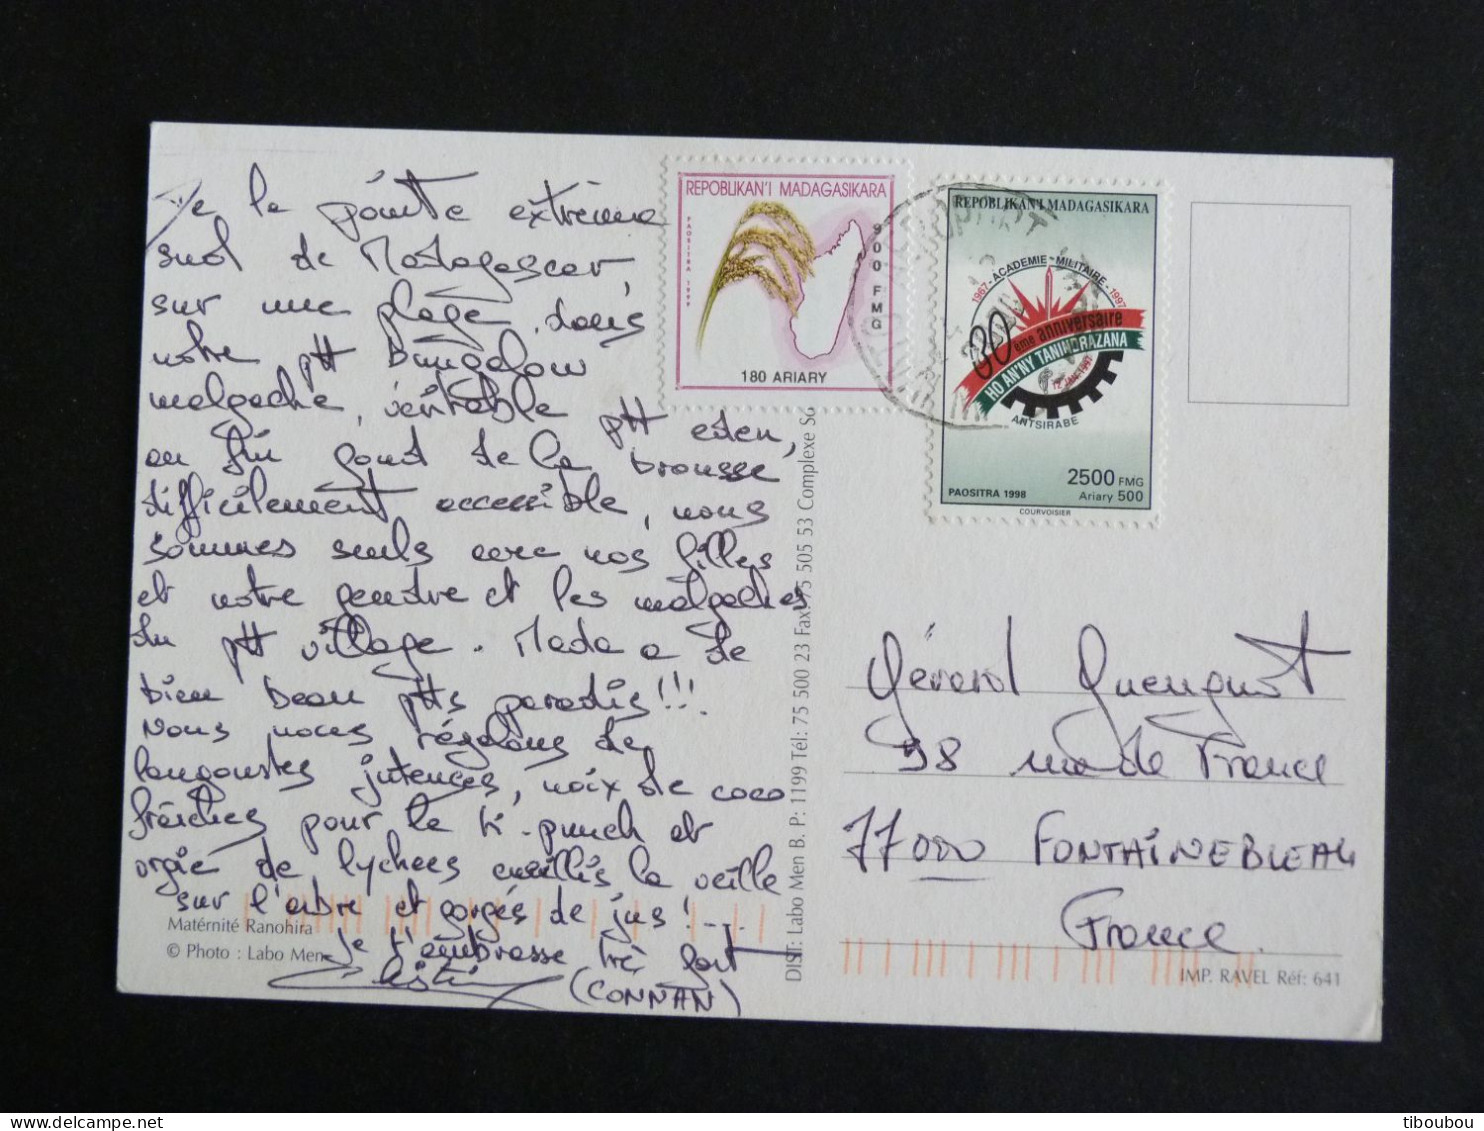 De la pointe extrême
sud de Madagascar
sur une plage, dans
notre ptt Bungalow
malgache, véritable ptt eden,
au fin fond de la brousse,
difficilement accessible, nous
sommes seuls avec nos filles
et notre gendre et les malgaches
du ptt village. Mada a de
bien beau ptts paradis!!!
Nous nous régalons de
langoustes, noix de coco
fraîches pour le ti-punch et
orgie de lychees cueillis la veille
sur l'arbre et gorgés de jus!...
Je t'embrasse très fort
(CONNAN)
Matérnité Ranohira
© Photo : Labo Men
DIST: Labo Men B. P: 1199 Tél: 75 500 23 Fax: 75 505 53 Complexe So
REPOBLIKAN'I MADAGASIKARA
PAOSITRA 1999
900 FMG
180 ARIARY
REPOBLIKAN'I MADAGASIKARA
1967-ACADEMIE-MILITAIRE-1997
30ème anniversaire
HO AN'NY TANINDRAZANA
12 JAN. 1997
ANTSIRABE
2500 FMG
PAOSITRA 1998 Ariary 500
COURVOISIER
Gérard Guenguot
98 rue de France
77000 FONTAINEBLEAU
France.
IMP. RAVEL Réf: 641
tiboubou